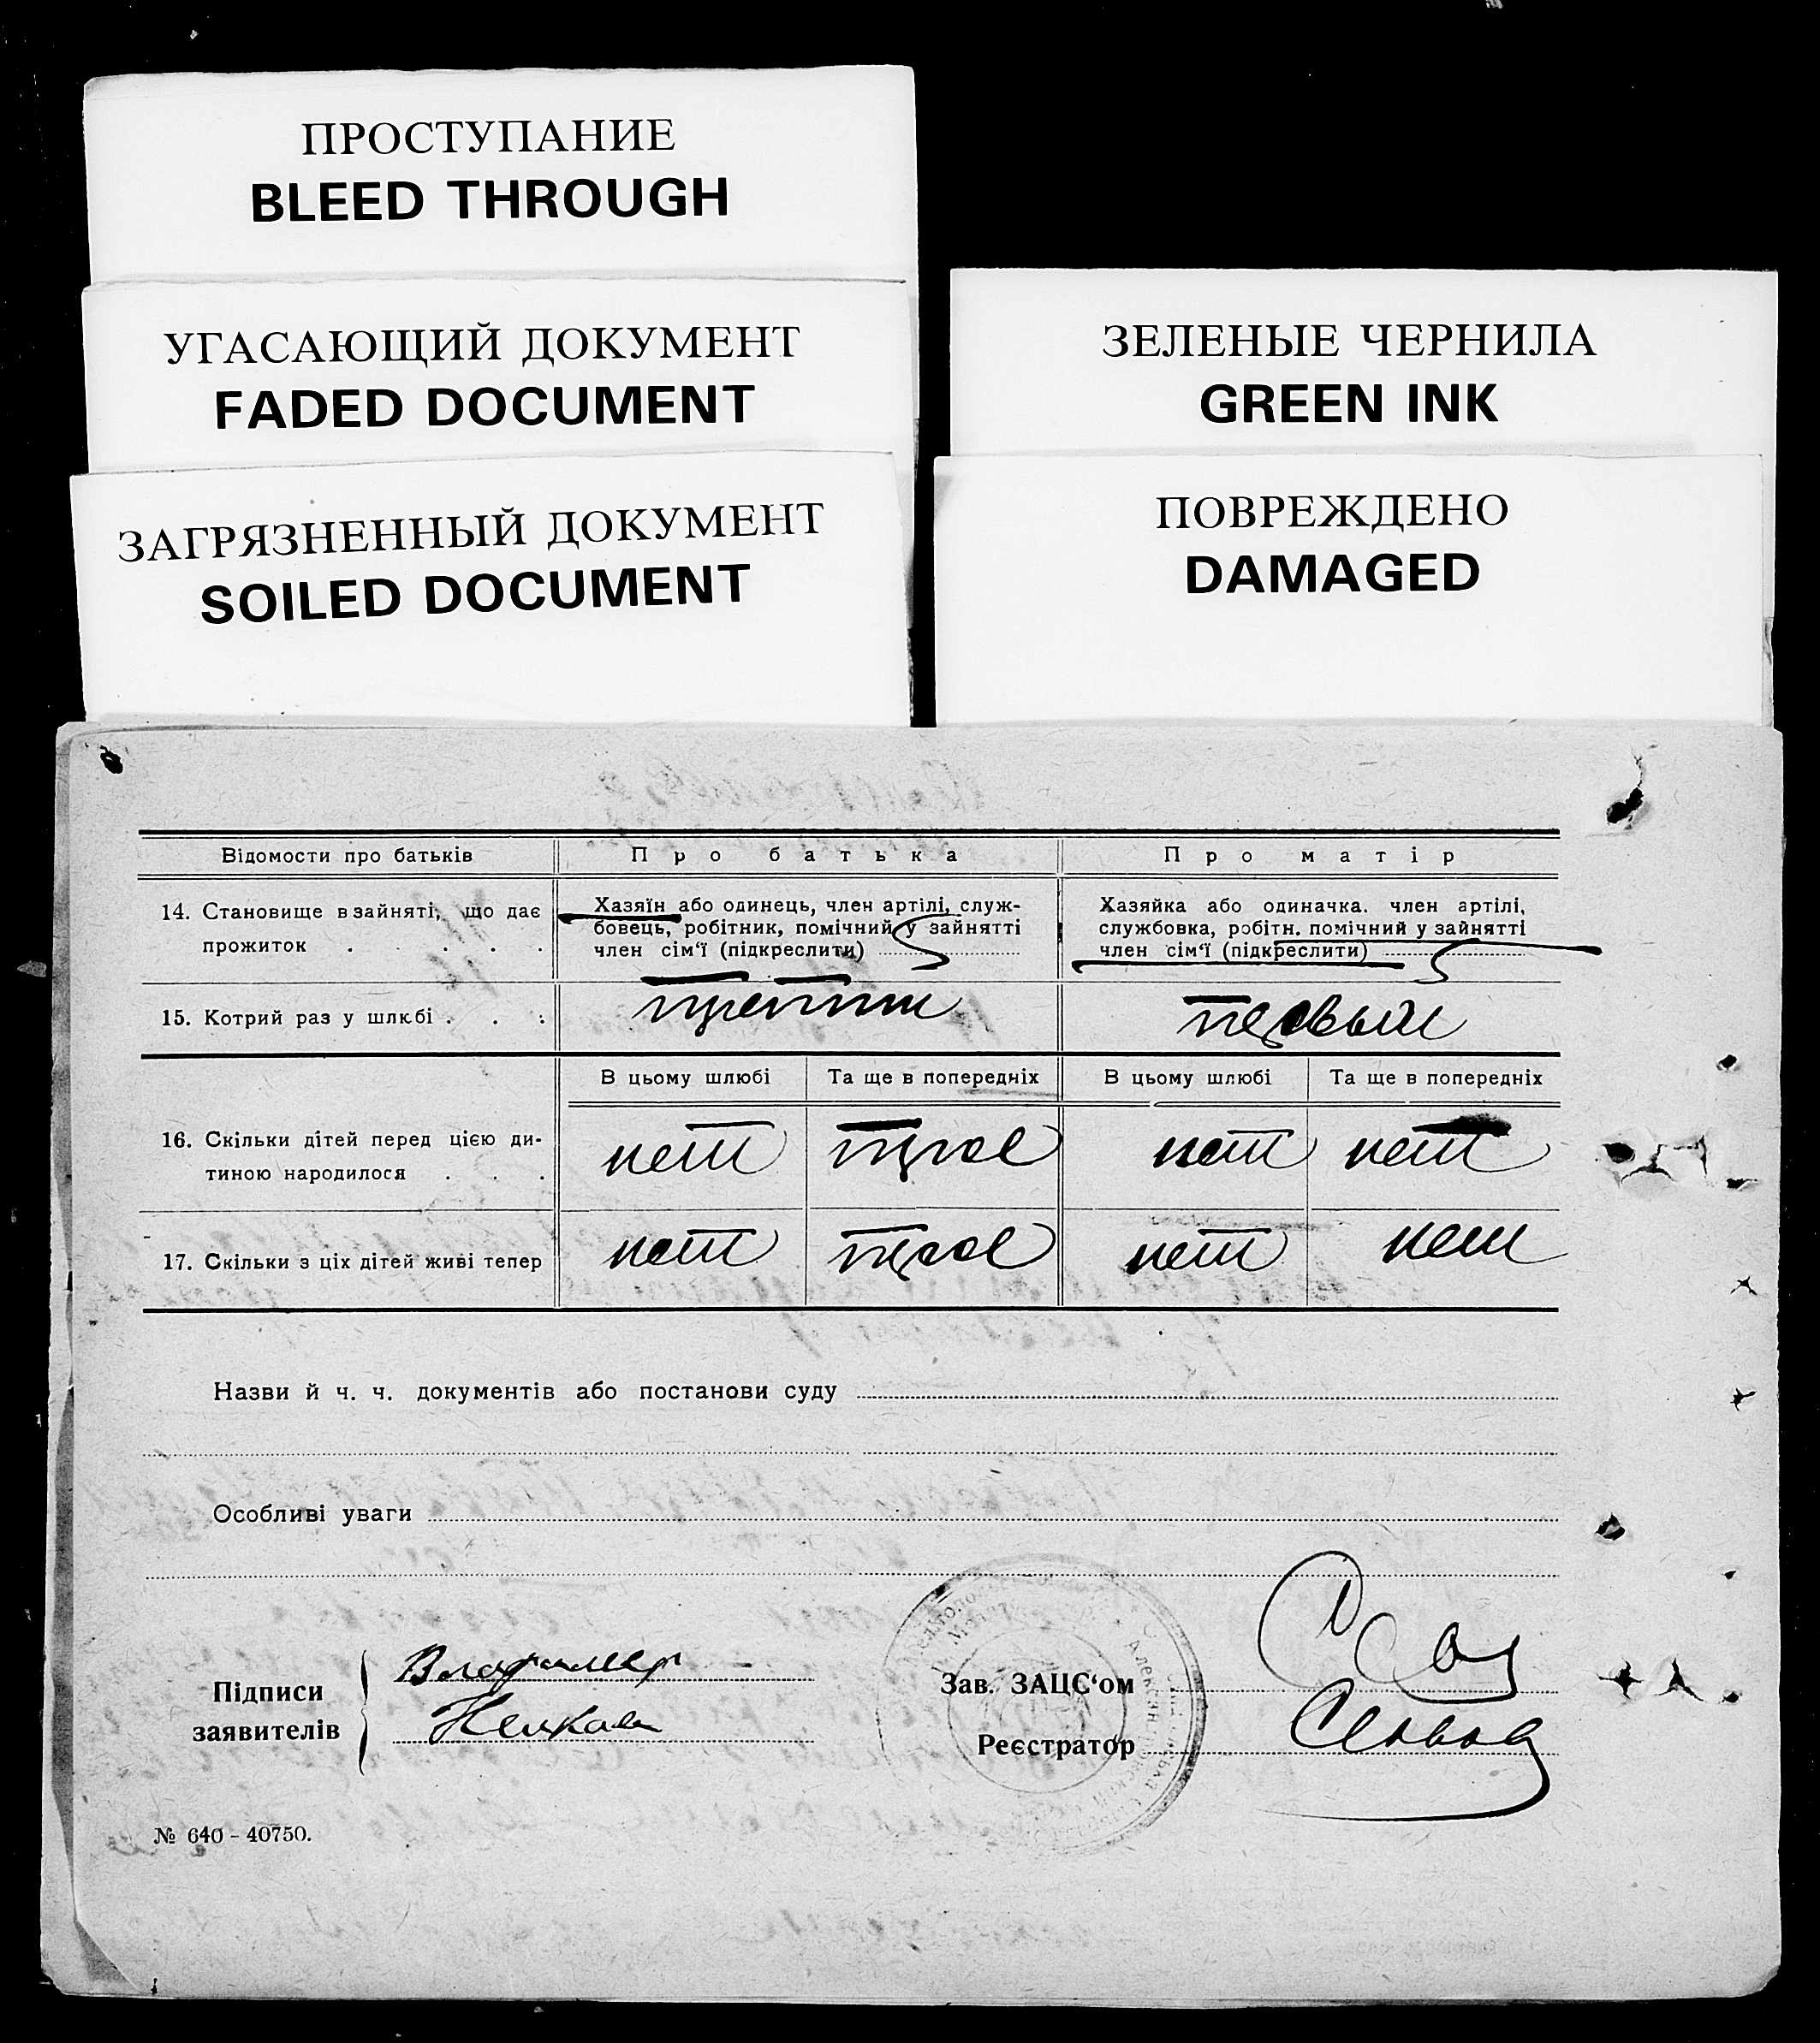 ПРОСТУПАНИЕ
BLEED THROUGH
УГАСАЮЩИЙ ДОКУМЕНТ
FADED DOCUMENT
ЗАГРЯЗНЕННЫЙ ДОКУМЕНТ
SOILED DOCUMENT
ЗЕЛЕНЫЕ ЧЕРНИЛА
GREEN INK
ПОВРЕЖДЕНО
DAMAGED
Відомости про батьків
Про батька
Про матір
14. Становище в зайняті, що дає
прожиток . . . . .
Хазяїн або одинець, член артілі, служ-
бовець, робітник, помічний у зайнятті
член сім‘ї (підкреслити)
Хазяйка або одиначка. член артілі,
службовка, робітн. помічний у зайнятті
член сім‘ї (підкреслити)
15. Котрий раз у шлюбі . . .
третий
первый
В цьому шлюбі
Та ще в попередніх
В цьому шлюбі
Та ще в попередніх
16. Скільки дітей перед цією ди-
тиною народилося . . .
нет
трое
нет
нет
17. Скільки з ціх дітей живі тепер
нет
трое
нет
нет
Назви й ч. ч. документів або постанови суду
Особливі уваги
Підписи
заявителів
Зав. ЗАЦС‘ом
Реєстратор
№ 640 - 40750.